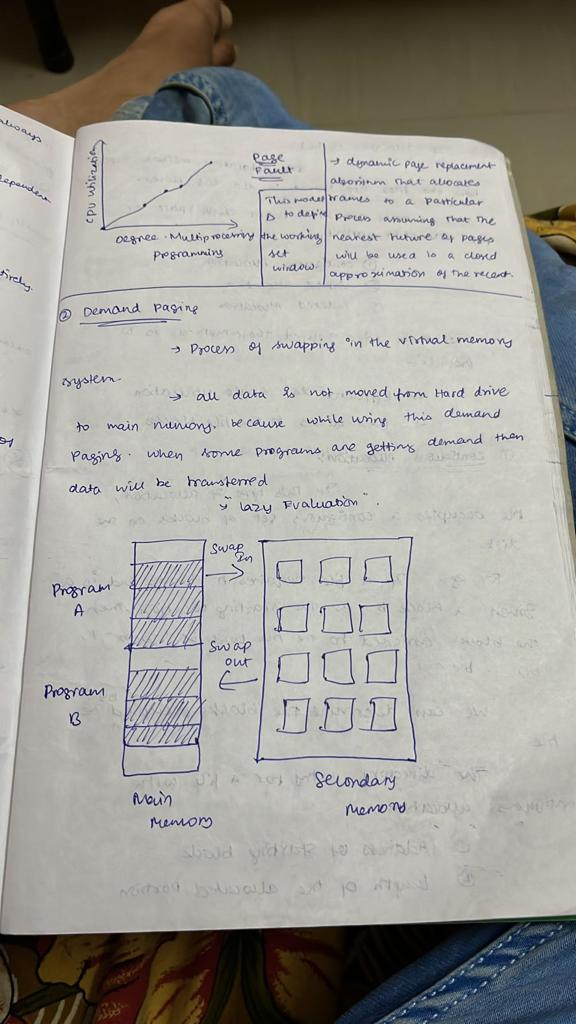 always
ependent
tirely.
of
CPU utilization
Degree - Multiprocessing
Programming
Page
Fault
This model
Δ to define
the working
set
window.
→ dynamic page replacement
algorithm that allocates
frames to a particular
Process assuming that the
nearest future of pages
will be used is a closed
approximation of the recent.
② Demand Paging
→ Process of swapping in the virtual memory
system.
→ all data is not moved from Hard drive
to main memory. because while using this demand
Paging. when some programs are getting demand then
data will be transferred
→ "Lazy Evaluation".
Swap
In
Program
A
Swap
out
Program
B
Main
Memory
Secondary
Memory